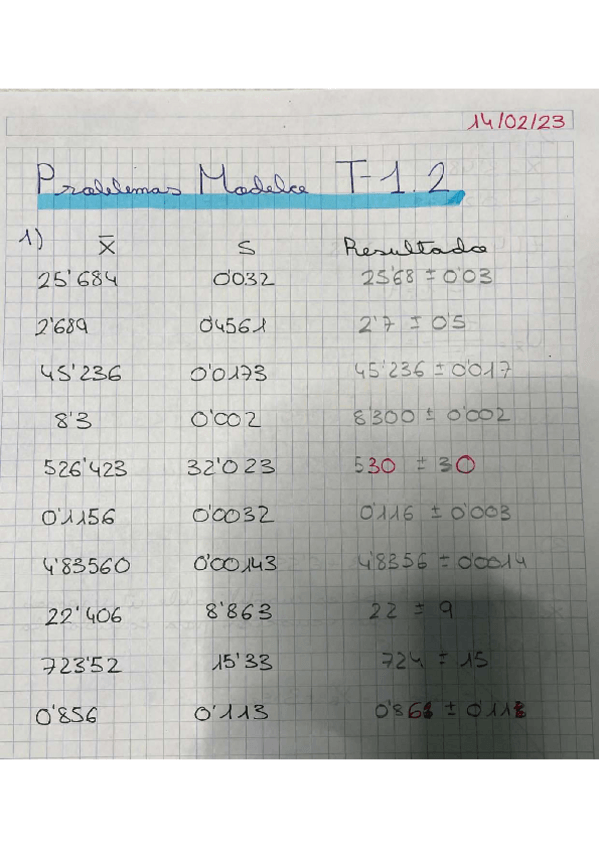 14/02/23
Problemas Modelo T-1.2
1) x̄ S Resultado
25'684 0'032 25'68 ± 0'03
2'689 0'4561 2'7 ± 0'5
45'236 0'0173 45'236 ± 0'017
8'3 0'002 8'300 ± 0'002
526'423 32'023 530 ± 30
0'1156 0'0032 0'116 ± 0'003
4'83560 0'00143 4'8356 ± 0'0014
22'406 8'863 22 ± 9
723'52 15'33 724 ± 15
0'856 0'113 ±